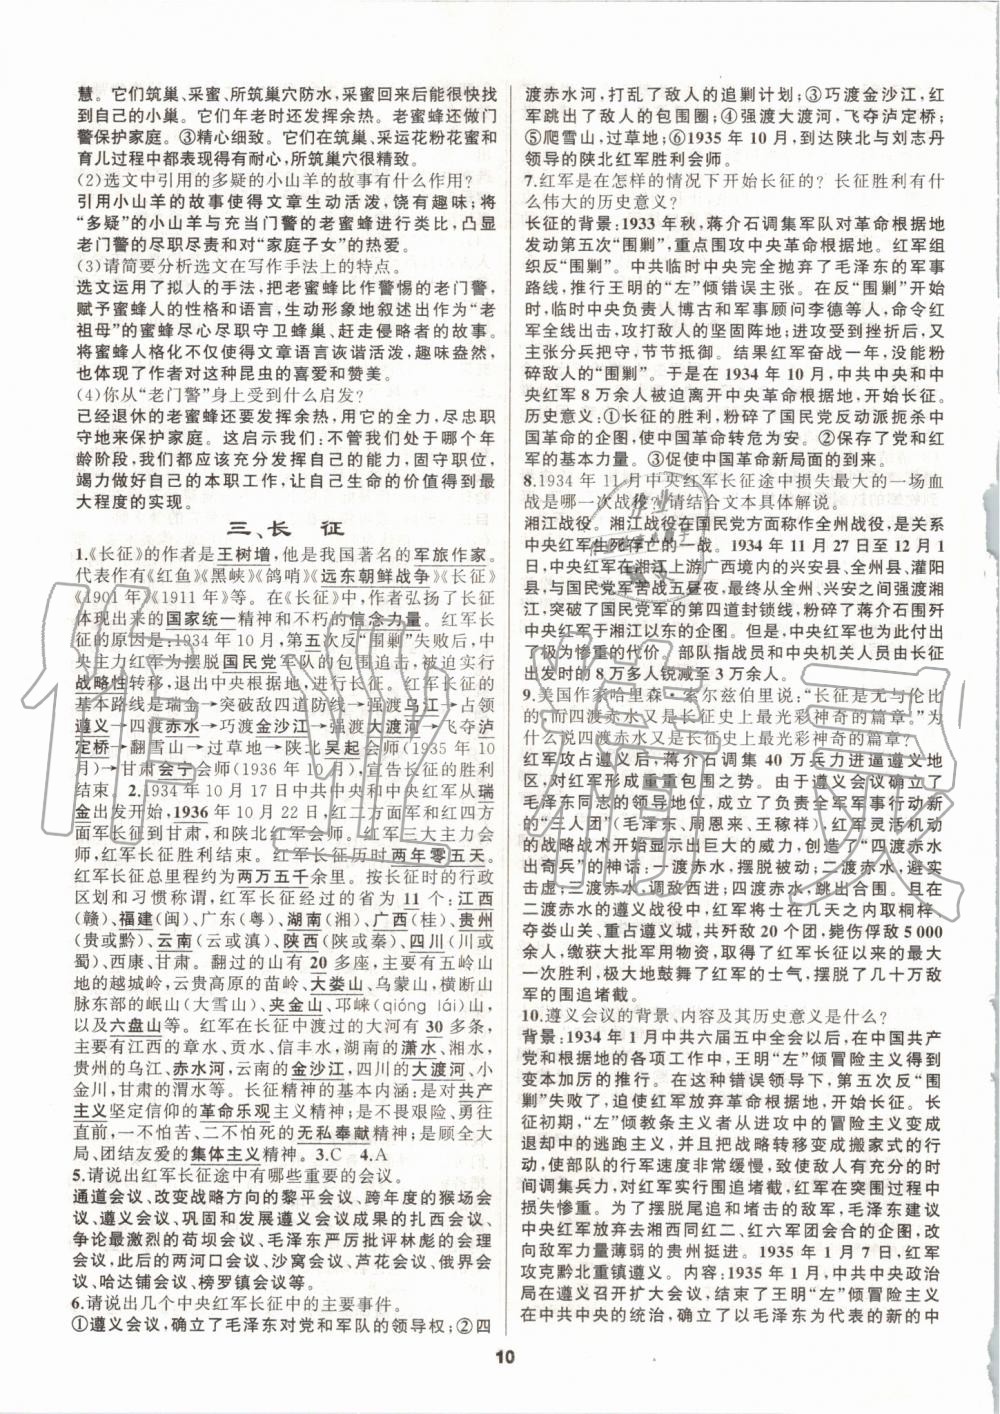 慧。它们筑巢、采蜜、所筑巢穴防水，采蜜回来后能很快找
到自己的小巢。它们年老时还发挥余热。老蜜蜂还做门
警保护家庭。③精心细致。它们在筑巢、采运花粉花蜜和
育儿过程中都表现得有耐心，所筑巢穴很精致。
(2)选文中引用的多疑的小山羊的故事有什么作用?
引用小山羊的故事使得文章生动活泼，饶有趣味；将
“多疑”的小山羊与充当门警的老蜜蜂进行类比，凸显
老门警的尽职尽责和对“家庭子女”的热爱。
(3)请简要分析选文在写作手法上的特点。
选文运用了拟人的手法，把老蜜蜂比作警惕的老门警，
赋予蜜蜂人的性格和语言，生动形象地叙述出作为“老
祖母”的蜜蜂尽心尽职守卫蜂巢、赶走侵略者的故事。
将蜜蜂人格化，使得文章语言诙谐活泼，趣味盎然，
也体现了作者对这种昆虫的喜爱和赞美。
(4)你从“老门警”身上受到什么启发?
已经退休的老蜜蜂还要发挥余热，用它的全力，尽忠职
守地来保护家庭。这启示我们：不管我们处于哪个年
龄阶段，我们都应该充分发挥自己的能力，固守职位，
竭力做好自己的本职工作，让自己生命的价值得到最
大程度的实现。
三、长 征
1.《长征》的作者是王树增，他是我国著名的军旅作家。
代表作有《红鱼》《黑峡》《鸽哨》《远东朝鲜战争》《长征》
《1901年》《1911年》等。在《长征》中，作者弘扬了长征
体现出来的国家统一精神和不朽的信念力量。红军长
征的原因是：1934年10月，第五次反“围剿”失败后，中
央主力红军为摆脱国民党军队的包围追击，被迫实行
战略性转移，退出中央根据地，进行长征。红军长征的
基本路线是瑞金→突破敌四道防线→强渡乌江→占领
遵义→四渡赤水→巧渡金沙江→强渡大渡河→飞夺泸
定桥→翻雪山→过草地→陕北吴起会师（1935年10
月）→甘肃会宁会师（1936年10月），宣告长征的胜利
结束。 2.1934年10月17日中共中央和中央红军从瑞
金出发开始，1936年10月22日，红二方面军和红四方
面军长征到甘肃，和陕北红军会师。红军三大主力会
师，长征胜利结束。红军长征历时两年零五天。红军
长征总里程约为两万五千余里。按长征时的行政
区划和习惯称谓，红军长征经过的省为11个：江西
(赣)、福建(闽)、广东(粤)、湖南(湘)、广西(桂)、贵州
(贵或黔)、云南(云或滇)、陕西(陕或秦)、四川(川或
蜀)、西康、甘肃。翻过的山有20多座，主要有五岭山
地的越城岭，云贵高原的苗岭、大娄山、乌蒙山，横断山
脉东部的岷山(大雪山)、夹金山、邛崃(qióng lái)山，
以及六盘山等。红军在长征中渡过的大河有30多条，
主要有江西的章水、贡水、信丰河，湖南的潇水、湘水，
贵州的乌江、赤水河，云南的金沙江，四川的大渡河、小
金川，甘肃的渭水等。长征精神的基本内涵：是对共产
主义坚定信仰的革命乐观主义精神；是不畏艰险、勇往
直前，一不怕苦、二不怕死的无私奉献精神；是顾全大
局、团结友爱的集体主义精神。3.C　4.A
5.请说出红军长征途中有哪些重要的会议。
通道会议、改变战略方向的黎平会议、跨年度的猴场会
议、遵义会议、巩固和发展遵义会议成果的扎西会议、
争论最激烈的苟坝会议、毛泽东严厉批评林彪的会理
会议，此后的两河口会议、沙窝会议、芦花会议、俄界会
议、哈达铺会议、榜罗镇会议等。
6.请说出几个中央红军长征中的主要事件。
①遵义会议，确立了毛泽东对党和军队的领导权；②四
渡赤水河，打乱了敌人的追剿计划；③巧渡金沙江，红
军跳出了敌人的包围圈；④强渡大渡河，飞夺泸定桥；
⑤爬雪山，过草地；⑥1935年10月，到达陕北与刘志丹
领导的陕北红军胜利会师。
7.红军是在怎样的情况下开始长征的？长征胜利有什
么伟大的历史意义?
长征的背景：1933年秋，蒋介石调集军队对革命根据地
发动第五次“围剿”，重点围攻中央革命根据地。红军组
织反“围剿”。中共临时中央完全抛弃了毛泽东的军事
路线，推行王明的“左”倾错误主张。在反“围剿”开始
时，临时中央负责人博古和军事顾问李德等人，命令红
军全线出击，攻打敌人的坚固阵地；进攻受到挫折后，又
主张分兵把守，节节抵御。结果红军奋战一年，没能粉
碎敌人的“围剿”。于是在1934年10月，中共中央和中
央红军8万余人被迫离开中央革命根据地，开始长征。
历史意义：①长征的胜利，粉碎了国民党反动派扼杀中
国革命的企图，使中国革命转危为安。②保存了党和红
军的基本力量。③促使中国革命新局面的到来。
8.1934年11月中央红军长征途中损失最大的一场血
战是哪一次战役？请结合文本具体解说。
湘江战役。湘江战役在国民党方面称作全州战役，是关系
中央红军生死存亡的一战。1934年11月27日至12月1
日，中央红军在湘江上游广西境内的兴安县、全州县、灌阳
县，与国民党军苦战五昼夜，最终从全州、兴安之间强渡湘
江，突破了国民党军的第四道封锁线，粉碎了蒋介石围歼
中央红军于湘江以东的企图。但是，中央红军也为此付出
了极为惨重的代价。部队指战员和中央机关人员由长征
出发时的8万多人锐减至3万余人。
9.美国作家哈里森·索尔兹伯里说：“长征是无与伦比
的，而四渡赤水又是长征史上最光彩神奇的篇章。”为
什么说四渡赤水又是长征史上最光彩神奇的篇章?
红军攻占遵义后，蒋介石调集40万兵力进逼遵义地
区，对红军形成重重包围之势。由于遵义会议确立了
毛泽东同志的领导地位，成立了负责全军军事行动新
的“三人团”（毛泽东、周恩来、王稼祥），红军灵活机动
的战略战术开始显示出巨大的威力，创造了“四渡赤水
出奇兵”的神话：一渡赤水，摆脱被动；二渡赤水，避实
击虚；三渡赤水，调敌西进；四渡赤水，跳出合围。且在
二渡赤水的遵义战役中，红军将士在几天之内取桐梓、
夺娄山关、重占遵义城，共歼敌20个团，毙伤俘敌5 000
余人，缴获大批军用物资，取得了红军长征以来最大的
一次胜利，极大地鼓舞了红军的士气，摆脱了几十万敌
军的围追堵截。
10.遵义会议的背景、内容及其历史意义是什么?
背景：1934年1月中共六届五中全会以后，在中国共产
党和根据地的各项工作中，王明“左”倾冒险主义得到
变本加厉的推行。在这种错误领导下，第五次反“围
剿”失败了，迫使红军放弃革命根据地，开始长征。长
征初期，“左”倾教条主义者从进攻中的冒险主义变成
退却中的逃跑主义，并且把战略转移变成搬家式的行
动，使部队的行军速度非常缓慢，致使敌人有充分的时
间调集兵力，对红军实行围追堵截，红军在突围过程中
损失惨重。为了摆脱尾追和堵击的敌军，毛泽东建议
中央红军放弃去湘西同红二、红六军团会合的企图，改
向敌军力量薄弱的贵州挺进。1935年1月7日，红军
攻克黔北重镇遵义。内容：1935年1月，中共中央政治
局在遵义召开扩大会议，结束了王明“左”倾冒险主义
在中共中央的统治，确立了以毛泽东为代表的新的中
10
作业精灵